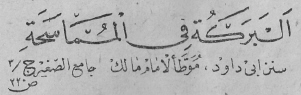 اَلْبَرَكَةُ فِي الْمُمَاسَحَةِ
سنن ابی داود، مؤطأ الامام مالك، جامع الصغیر ج ۲
ص ۲۲۰